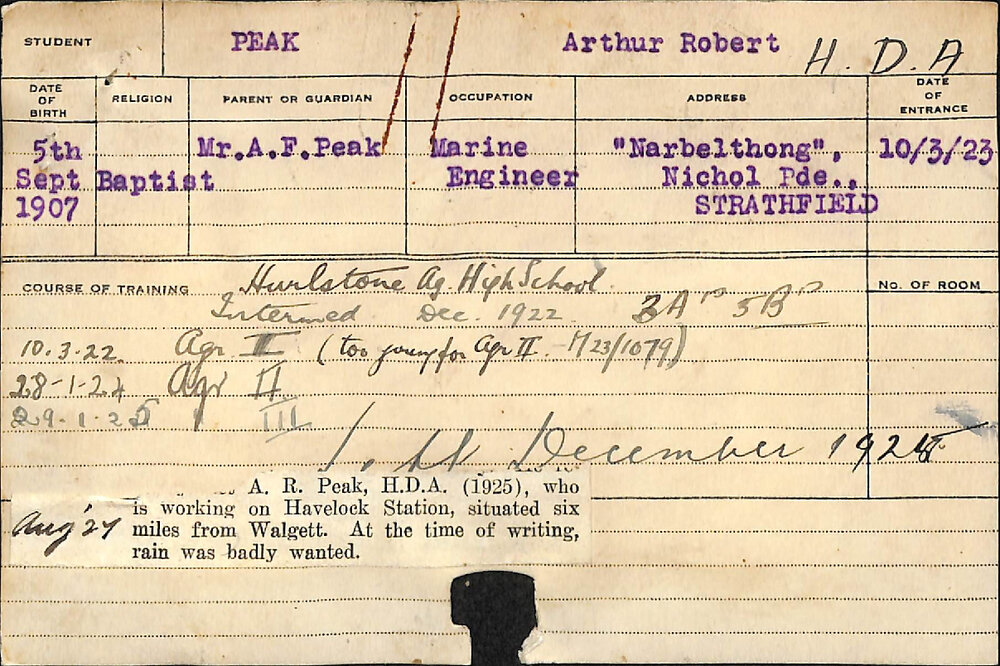 STUDENT PEAK Arthur Robert H. D. A
DATE OF BIRTH RELIGION PARENT OR GUARDIAN OCCUPATION ADDRESS DATE OF ENTRANCE
5th Mr.A.F.Peak Marine "Narbelthong", 10/3/23
Sept Baptist Engineer Nichol Pde.,
1907 STRATHFIELD
COURSE OF TRAINING Hurlstone Ag. High School No. OF ROOM
Intermed Dec. 1922 3A 5B
10.3.22. Agr III (too young for Agr II M23/1079)
28-1-24 Agr II
29-1-25 III
Left December 1925
A. R. Peak, H.D.A. (1925), who
Aug '27 is working on Havelock Station, situated six
miles from Walgett. At the time of writing,
rain was badly wanted.